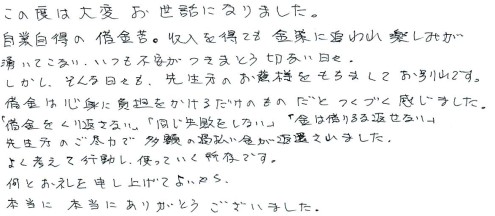 この度は大変 お世話になりました。
自業自得の 借金苦。収入を得ても 金策に追われ 楽しみが
湧いてこない、いつも不安がつきまとう 切ない日々。
しかし、そんな日々も、先生方のお蔭様をもちまして お別れです。
借金は心身に負担をかけるだけのもの だと つくづく感じました。
「借金をくり返さない」「同じ失敗をしない」「金は借りるな返せない」
先生方の ご尽力で 多額の過払い金が返還されました。
よく考えて行動し、使っていく所存です。
何とお礼を申し上げてよいやら、
本当に 本当に ありがとう ございました。